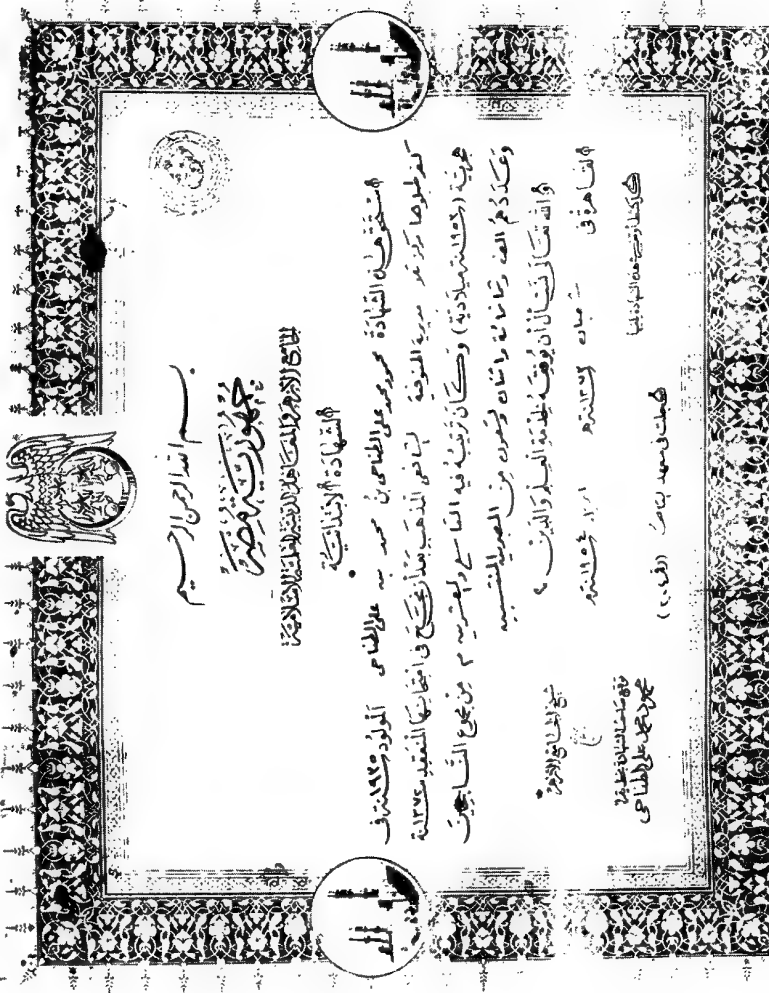 بسم الله الرحمن الرحيم
جمهورية مصر
الجامع الأزهر والمعاهد الدينية العلمية الإسلامية
الشهادة الابتدائية
استحق هذه الشهادة محمود محمد على الطناحى بن محمد على الطناحى المولود سنة ١٩٣٥ فى
كفر طبلوها مركز تلا مديرية المنوفية الشافعى المذهب بنجاح فى امتحانها المنعقد سنة ١٣٧٢
هجرية (١٩٥٣ سنة ميلادية) وكان ترتيبه فيه التاسع والعشرين من مجموع الناجحين
وعددهم ألف وثمانمائة واثنان وتسعون من المصريين المنتسبين
والله تعالى نسأل أن يوفقه لخدمة العلم والدين
القاهرة فى شعبان سنة ١٣٧٣ هـ ابريل سنة ١٩٥٤ م
شيخ الجامع الأزهر
توقيع صاحب الشهادة بخطه
محمود محمد على الطناحى
سجلت فى معهد القاهرة